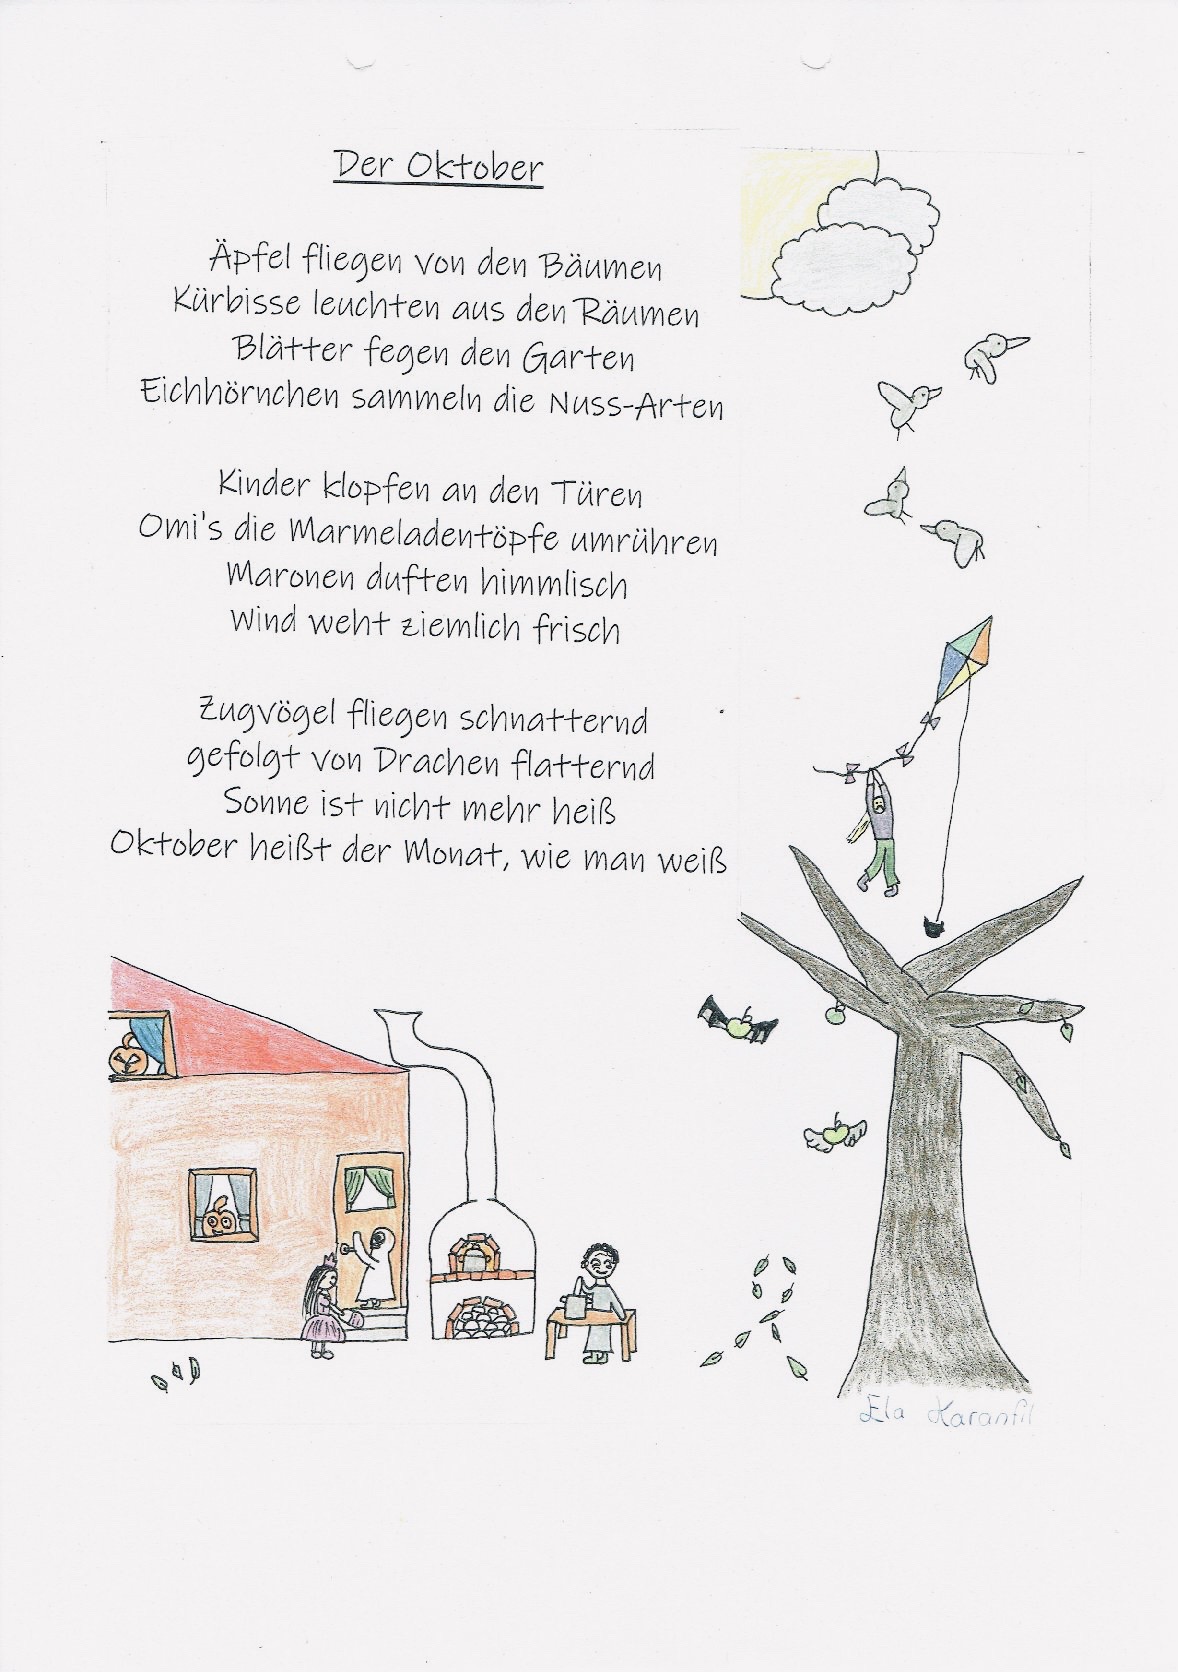 Der Oktober
Äpfel fliegen von den Bäumen
Kürbisse leuchten aus den Räumen
Blätter fegen den Garten
Eichhörnchen sammeln die Nuss-Arten
Kinder klopfen an den Türen
Omi's die Marmeladentöpfe umrühren
Maronen duften himmlisch
Wind weht ziemlich frisch
Zugvögel fliegen schnatternd
gefolgt von Drachen flatternd
Sonne ist nicht mehr heiß
Oktober heißt der Monat, wie man weiß
Ela Karanfil